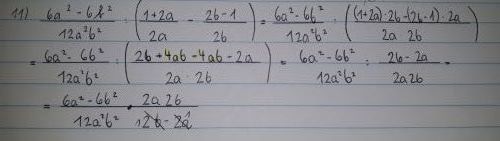 11) (6a² - 6b²)/(12a²b²) : ((1+2a)/(2a) - (2b-1)/(2b)) = (6a² - 6b²)/(12a²b²) : (((1+2a)·2b-(2b-1)·2a)/(2a 2b))
= (6a² - 6b²)/(12a²b²) : ((2b+4ab-4ab-2a)/(2a·2b)) = (6a² - 6b²)/(12a²b²) : (2b-2a)/(2a2b) =
= (6a² - 6b²)/(12a²b²) · (2a 2b)/(2b - 2a)